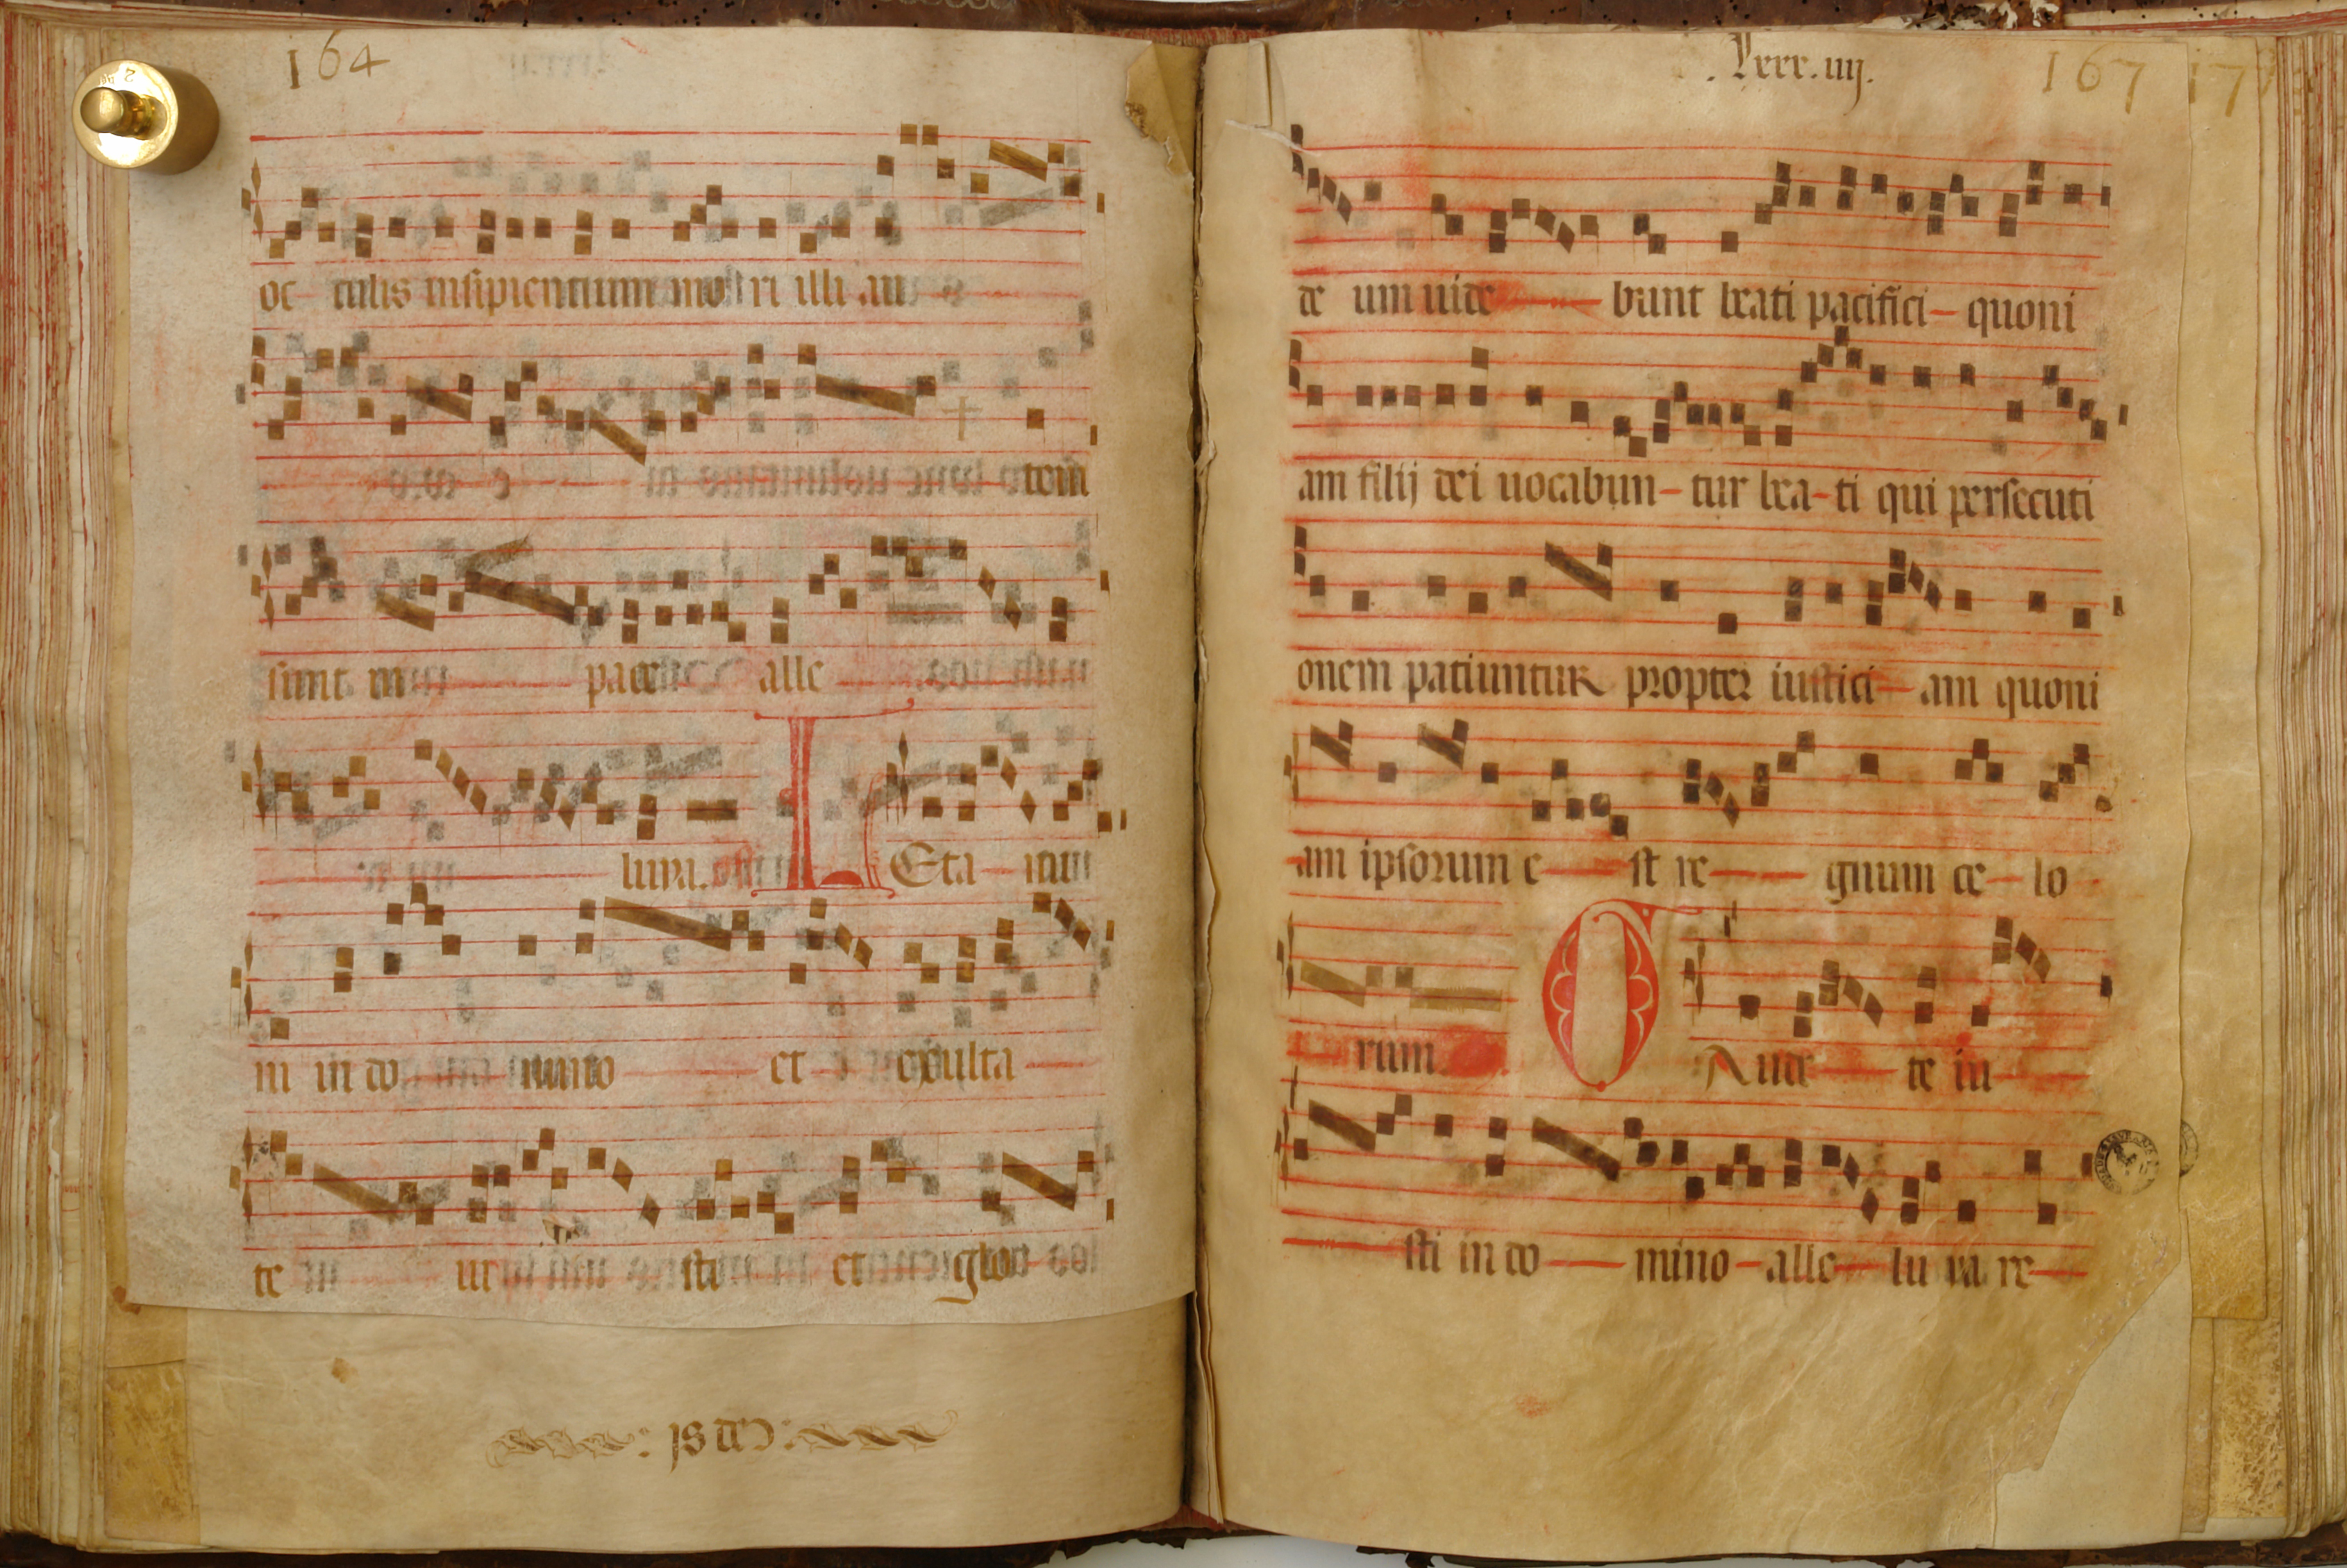 164
oc culis insipientium mo ri illi au
tem
sunt in pace alle
luya. L Eta mi
ni in do mino et exulta
te iu sti et glo
.lxxx.iiij.
167 177
de um uide bunt beati pacifici quoni
am filij dei uocabun tur bea ti qui persecuti
onem patiuntur propter iustici am quoni
am ipsorum e st re gnum ce lo
rum. G Aude te iu
sti in do mino alle lu ya re